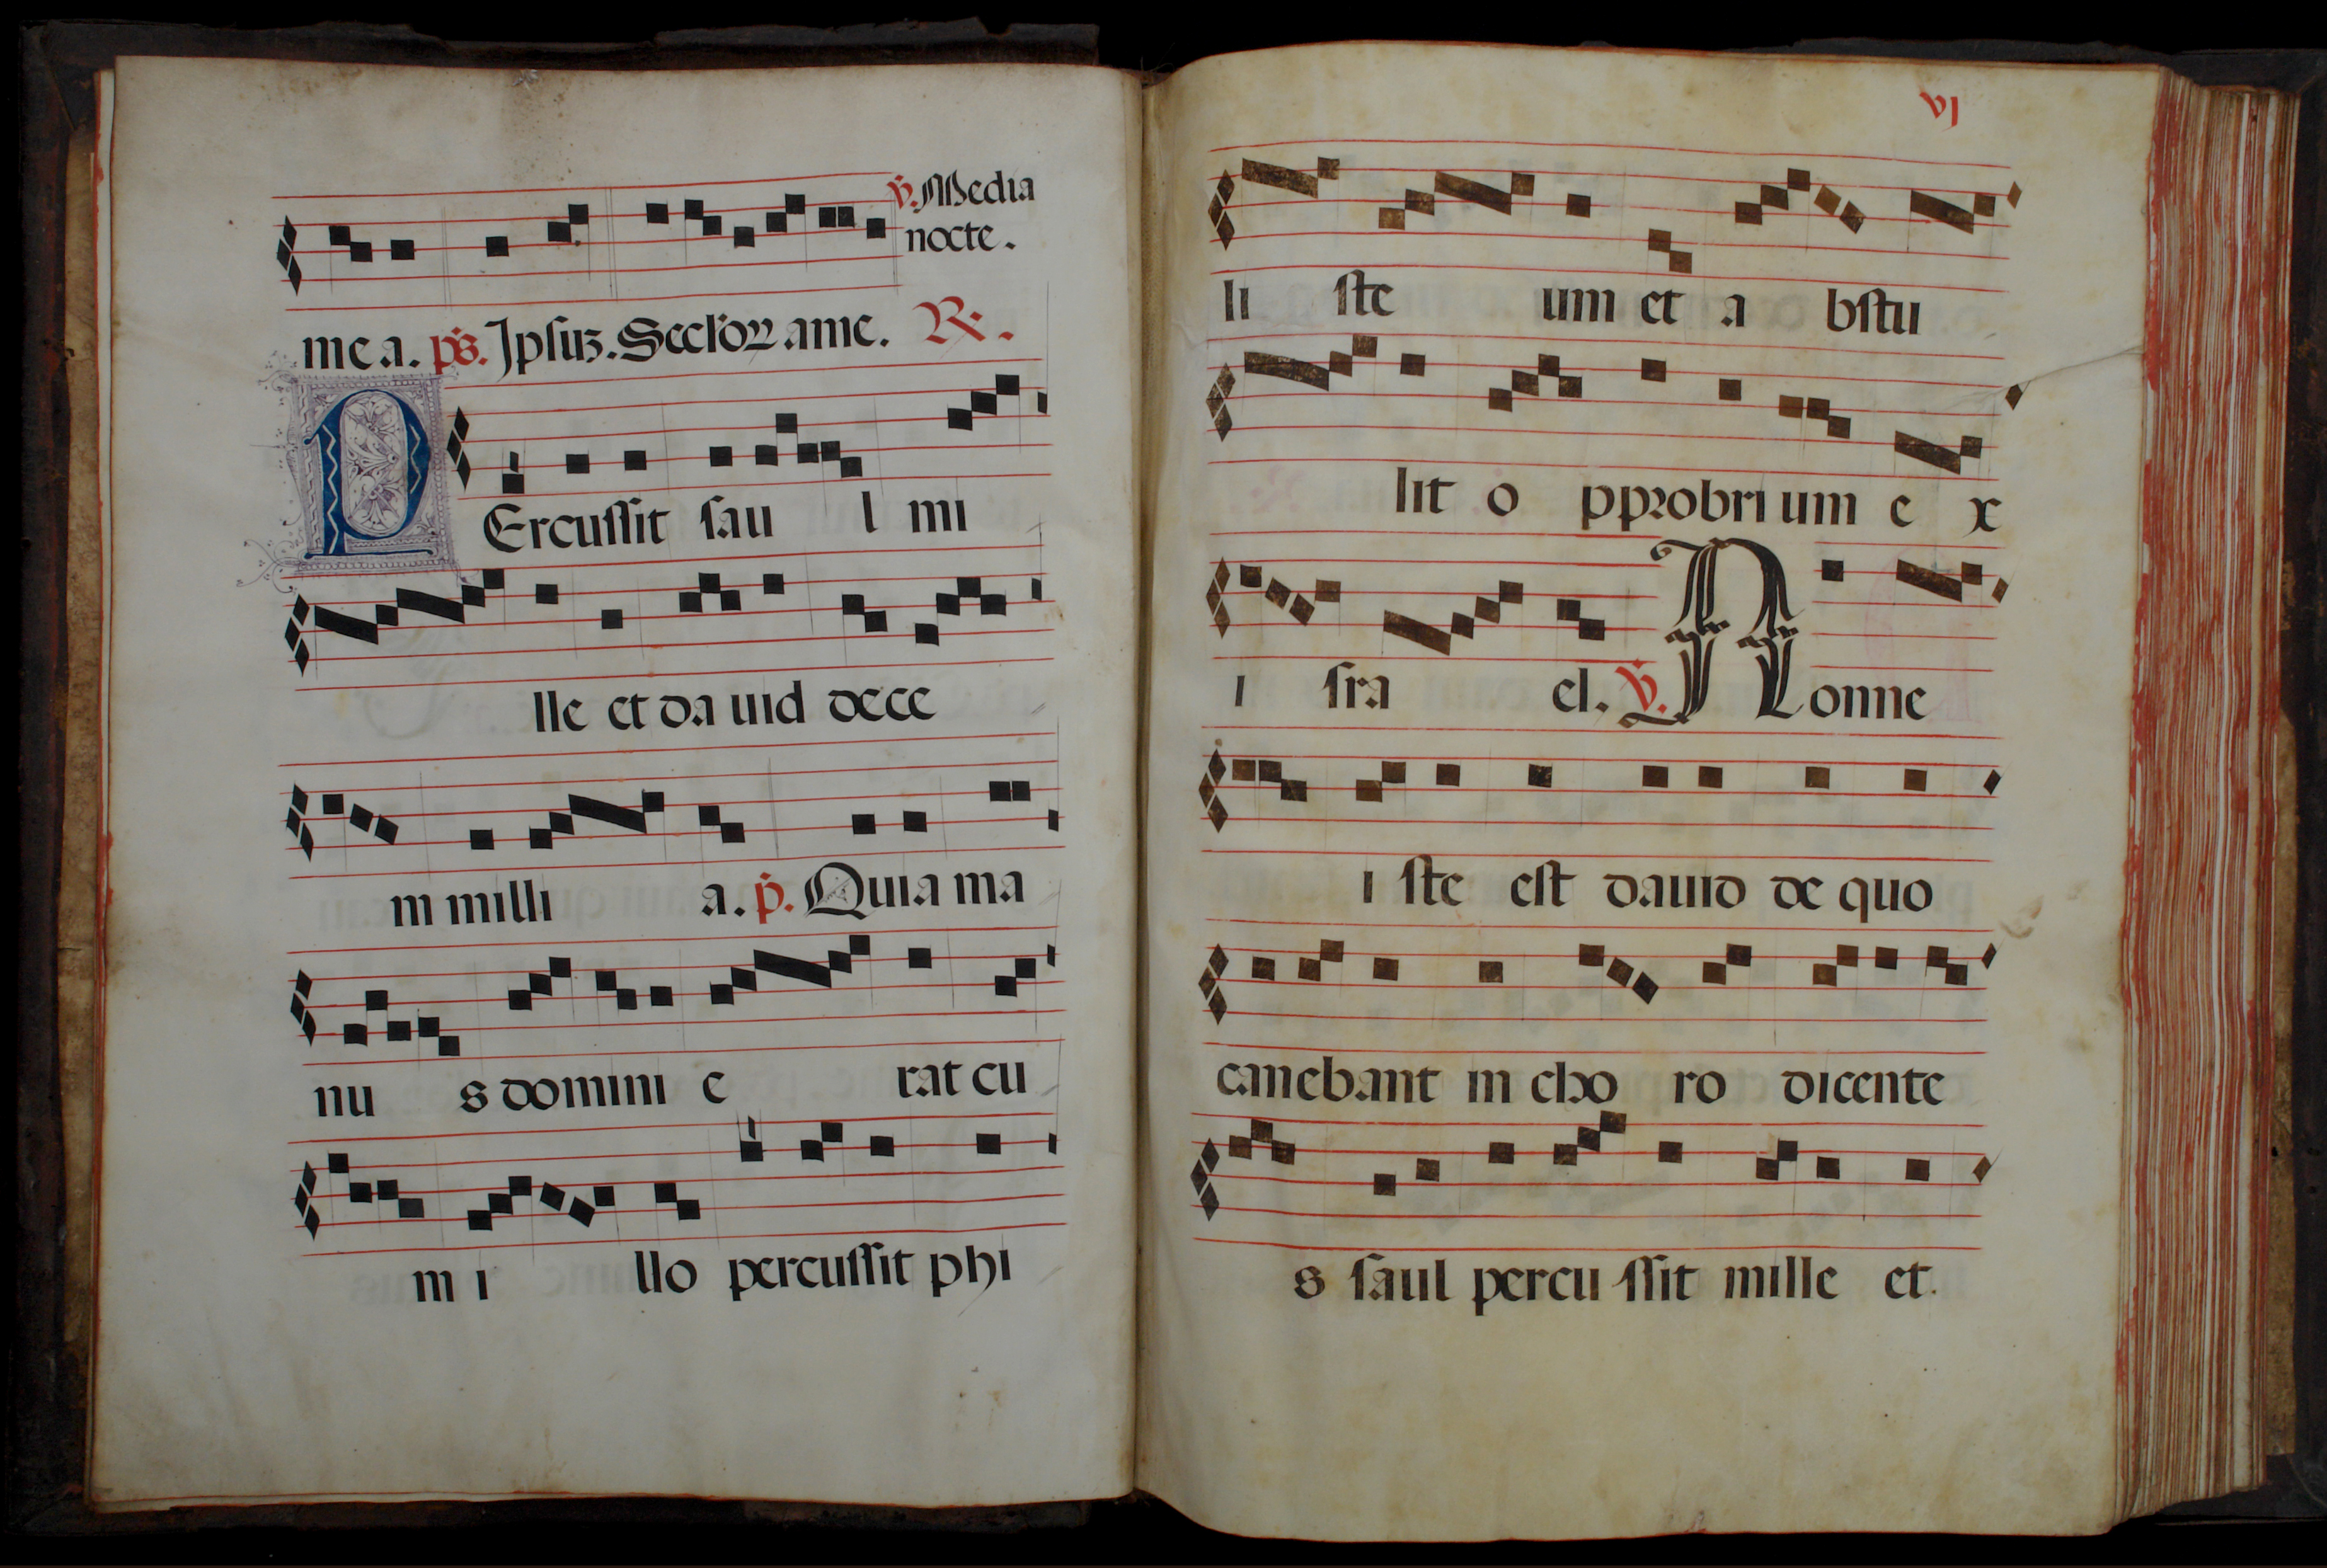 ℣. Media
nocte.
me a. ps. Ipsiuz. Seclorz ame. ℟.
PErcussit sau l mi
lle et da uid dece
m milli a. p̃. Quia ma
nu s domini e rat cu
m i llo percussit phi
vj
li ste um et a bstu
lit o pprobri um e x
i sra el. ℣. Nonne
i ste est dauid de quo
canebant in cho ro dicente
s saul percu ssit mille et.